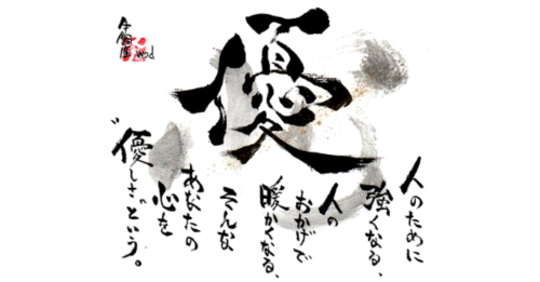 優
人のために
強くなる、
人の
おかげで
暖かくなる、
そんな
あなたの
心を
“優しさ”という。